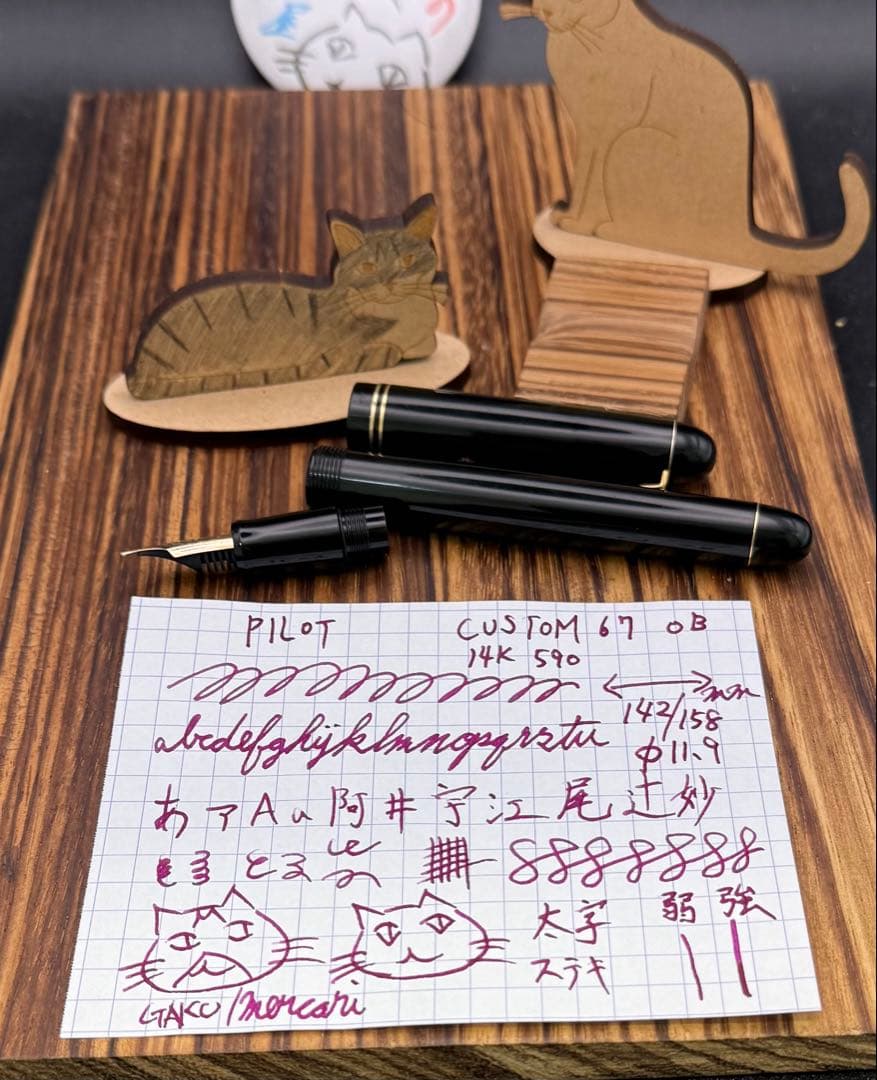 PILOT CUSTOM 67 OB
14K 590
mm
142/158
abcdefghijklmnopqrstu
φ11.9
あ ア A a 阿 井 宇 江 尾 辻 妙
8888888
太字 弱 強
ステキ
GAKU/mercari